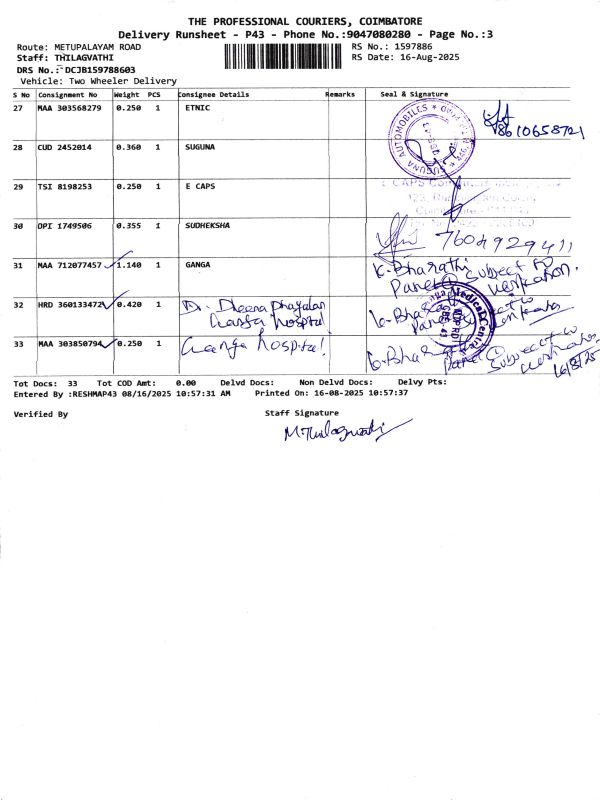 THE PROFESSIONAL COURIERS, COIMBATORE
Delivery Runsheet - P43 - Phone No.:9047080280 - Page No.:3
Route: METUPALAYAM ROAD RS No.: 1597886
Staff: THILAGVATHI RS Date: 16-Aug-2025
DRS No.: DCJB159788603
Vehicle: Two Wheeler Delivery
S No Consignment No Weight PCS Consignee Details Remarks Seal & Signature
27 MAA 303568279 0.250 1 ETNIC
28 CUD 2452014 0.360 1 SUGUNA SUGUNA AUTOMOBILES
29 TSI 8198253 0.250 1 E CAPS
30 OPI 1749506 0.355 1 SUDHEKSHA 7604929411
31 MAA 712077457 1.140 1 GANGA K. Bharathi
Subject to
32 HRD 360133472 0.420 1 Dr. Dheena Dhayalan
Ganga hospital
33 MAA 303850794 0.250 1 Ganga hospital K. Bharathi
Subject to
16/8/25
Tot Docs: 33 Tot COD Amt: 0.00 Delvd Docs: Non Delvd Docs: Delvy Pts:
Entered By :RESHMAP43 08/16/2025 10:57:31 AM Printed On: 16-08-2025 10:57:37
Verified By Staff Signature
M. Thilagvathi